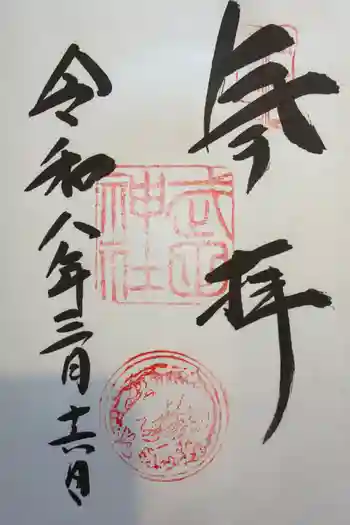 奉拝
武並
神社
令和八年三月十六日